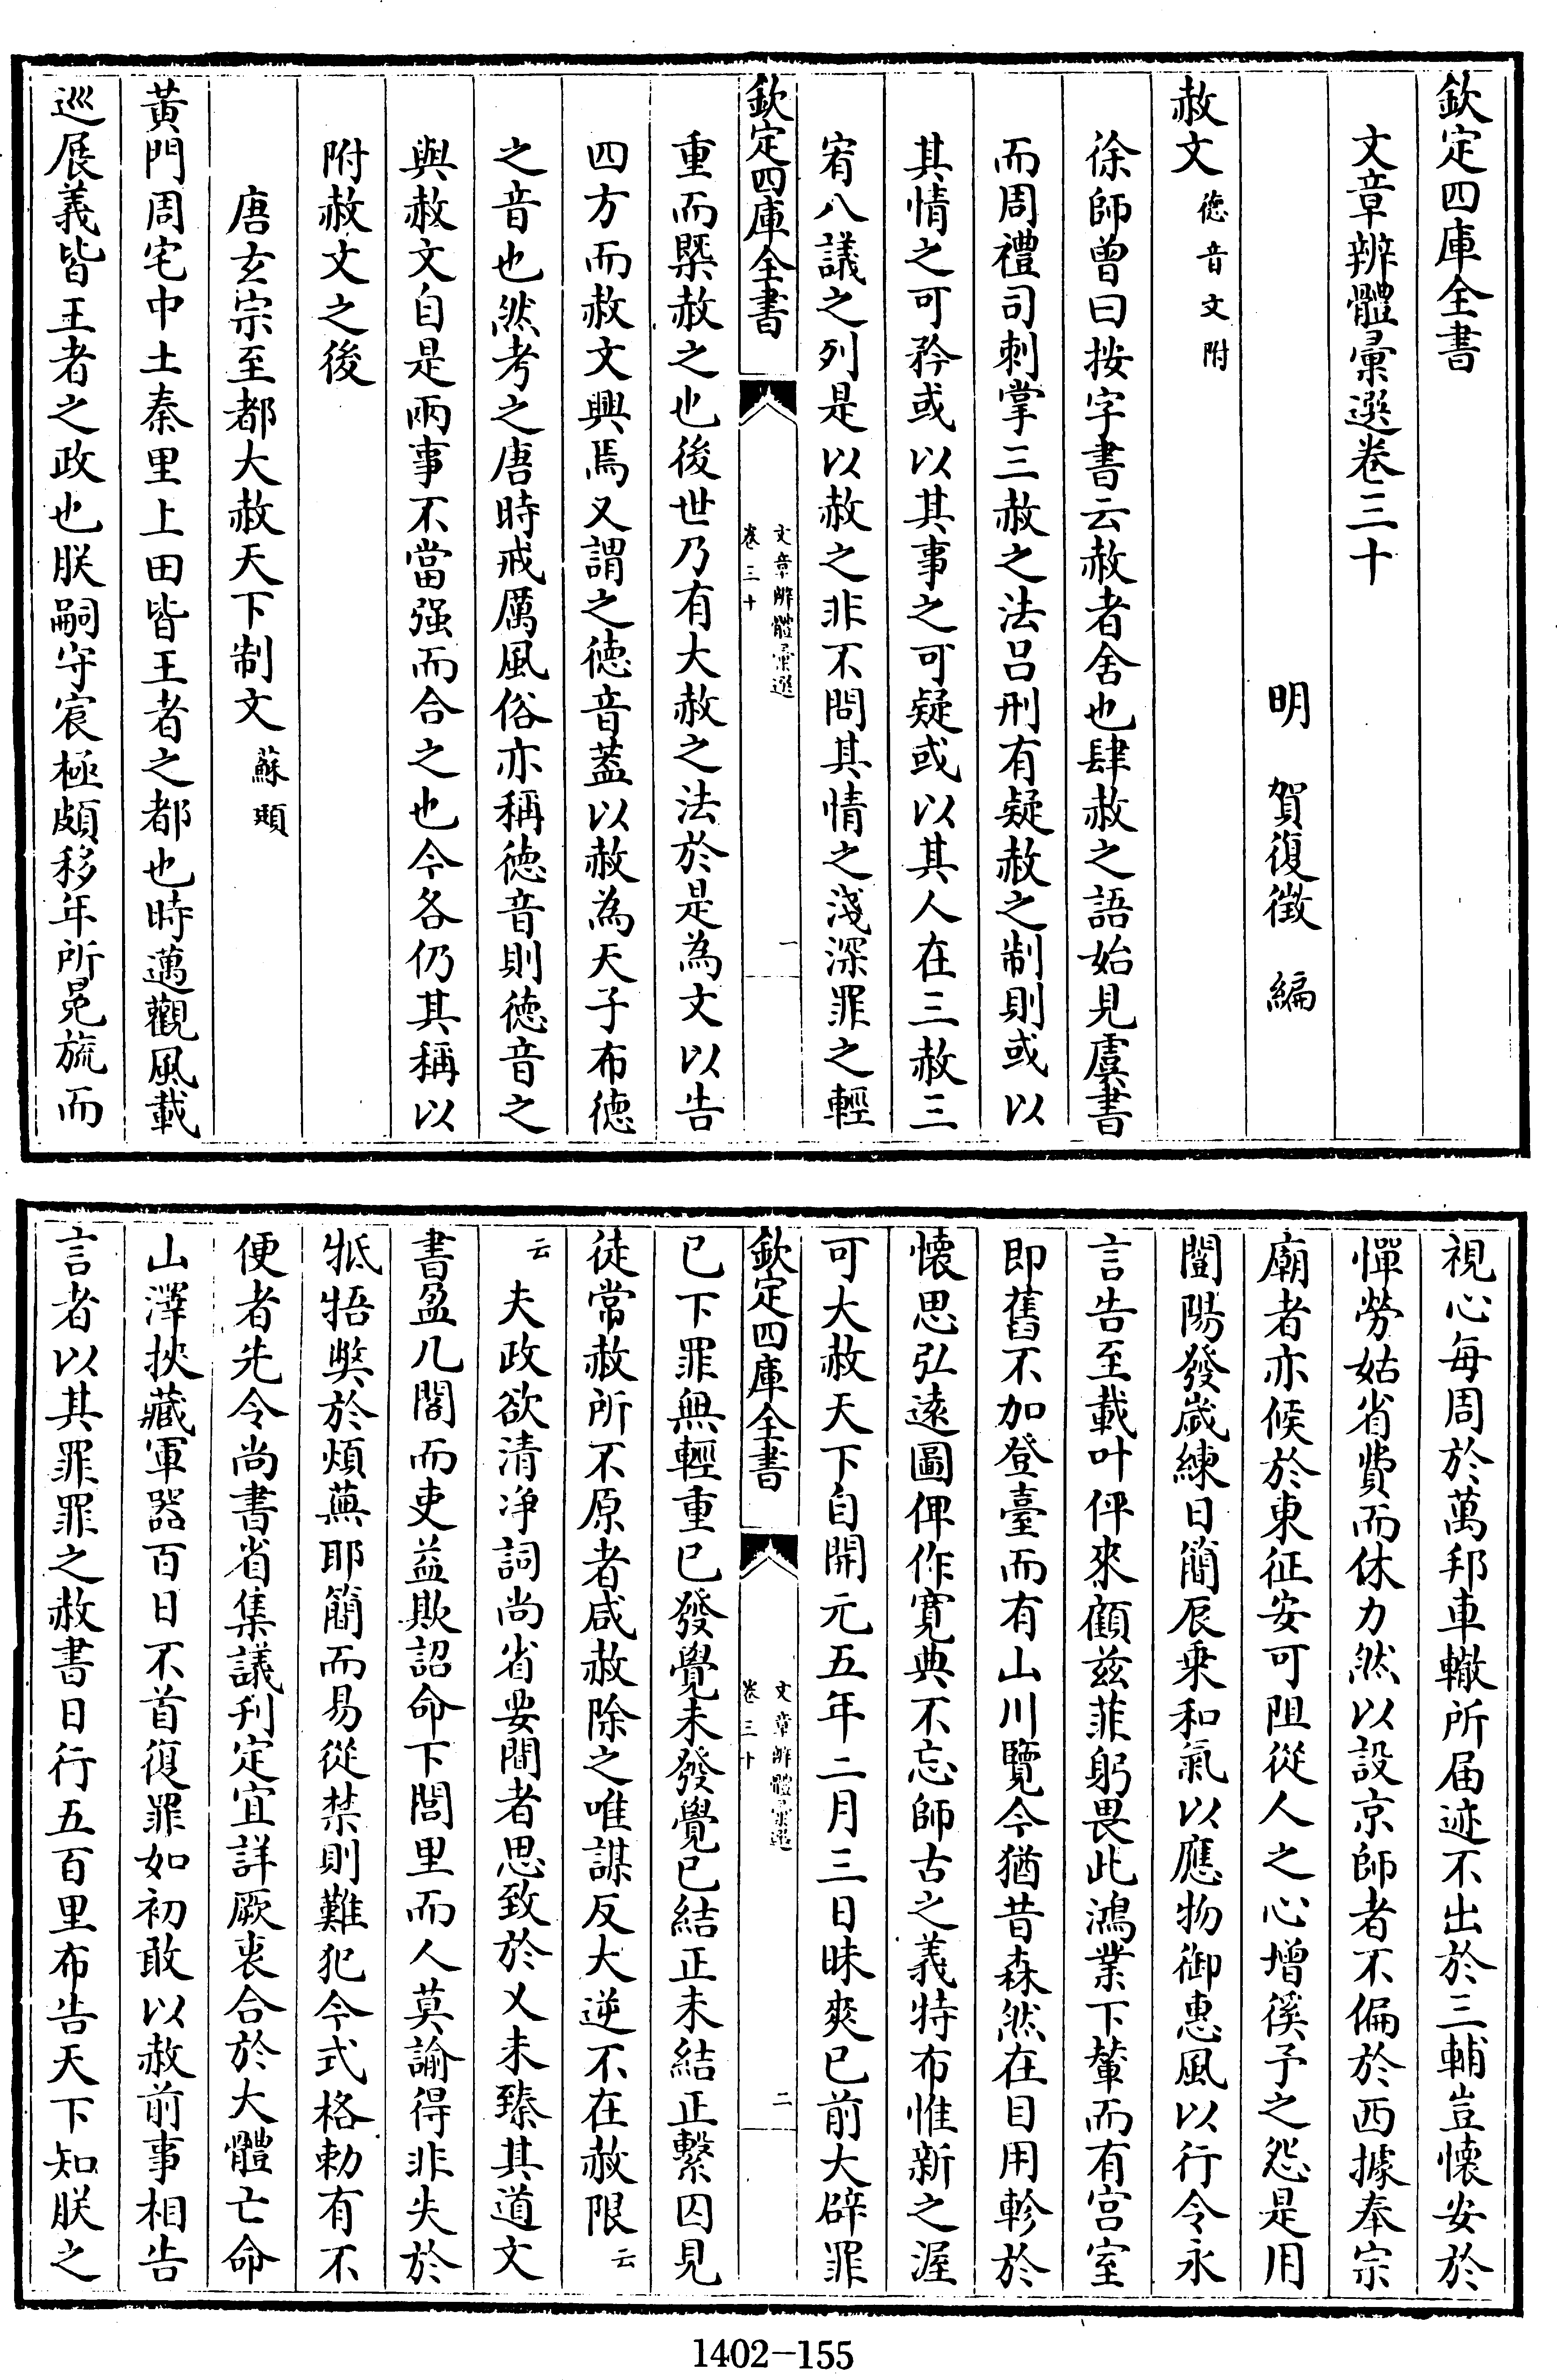 欽定四庫全書
文章辨體彙選卷三十
明 賀復徵 編
赦文德音文附
徐師曾曰按字書云赦者舍也肆赦之語始見虞書
而周禮司刺掌三赦之法呂刑有疑赦之制則或以
其情之可矜或以其事之可疑或以其人在三赦三
宥八議之列是以赦之非不問其情之淺深罪之輕
欽定四庫全書
文章辨體彙選
卷三十
一
重而槩赦之也後世乃有大赦之法於是為文以告
四方而赦文興焉又謂之徳音葢以赦為天子布徳
之音也然考之唐時戒厲風俗亦稱徳音則徳音之
與赦文自是兩事不當强而合之也今各仍其稱以
附赦文之後
唐玄宗至都大赦天下制文蘇頲
黃門周宅中土秦里上田皆王者之都也時邁觀風載
巡展義皆王者之政也朕嗣守宸極頗移年所冕旒而
視心每周於萬邦車轍所届迹不出於三輔豈懷安於
憚勞姑省費而休力然以設京師者不偏於西據奉宗
廟者亦候於東征安可阻從人之心增徯予之怨是用
闓陽發歲練日簡辰乗和氣以應物御惠風以行令永
言告至載叶伻來顧兹菲躬畏此鴻業下輦而有宫室
即舊不加登臺而有山川覽今猶昔森然在目用軫於
懷思弘遠圖俾作寛典不忘師古之義特布惟新之渥
可大赦天下自開元五年二月三日昧爽已前大辟罪
欽定四庫全書
文章辨體彙選
卷三十
二
已下罪無輕重已發覺未發覺已結正未結正繫囚見
徒常赦所不原者咸赦除之唯謀反大逆不在赦限云
云夫政欲清净詞尚省要間者思致於乂未臻其道文
書盈几閣而吏益欺詔命下閭里而人莫諭得非失於
牴牾弊於煩蕪耶簡而易從禁則難犯今式格勅有不
便者先令尚書省集議刋定宜詳厥衷合於大體亡命
山澤挾藏軍器百日不首復罪如初敢以赦前事相告
言者以其罪罪之赦書日行五百里布告天下知朕之
1402-155